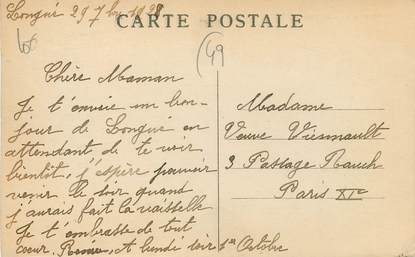 Longué 29 7bre 1928
CARTE POSTALE
49
Chère Maman
Je t'envoie un bon-
jour de Longué en
attendant de te voir
bientôt, j'espère pouvoir
venir le soir quand
j'aurais fait la vaisselle
Je t'embrasse de tout
coeur. A lundi soir 1er Octobre
Madame
Veuve Viesmault
3 Passage Rauch
Paris XIe